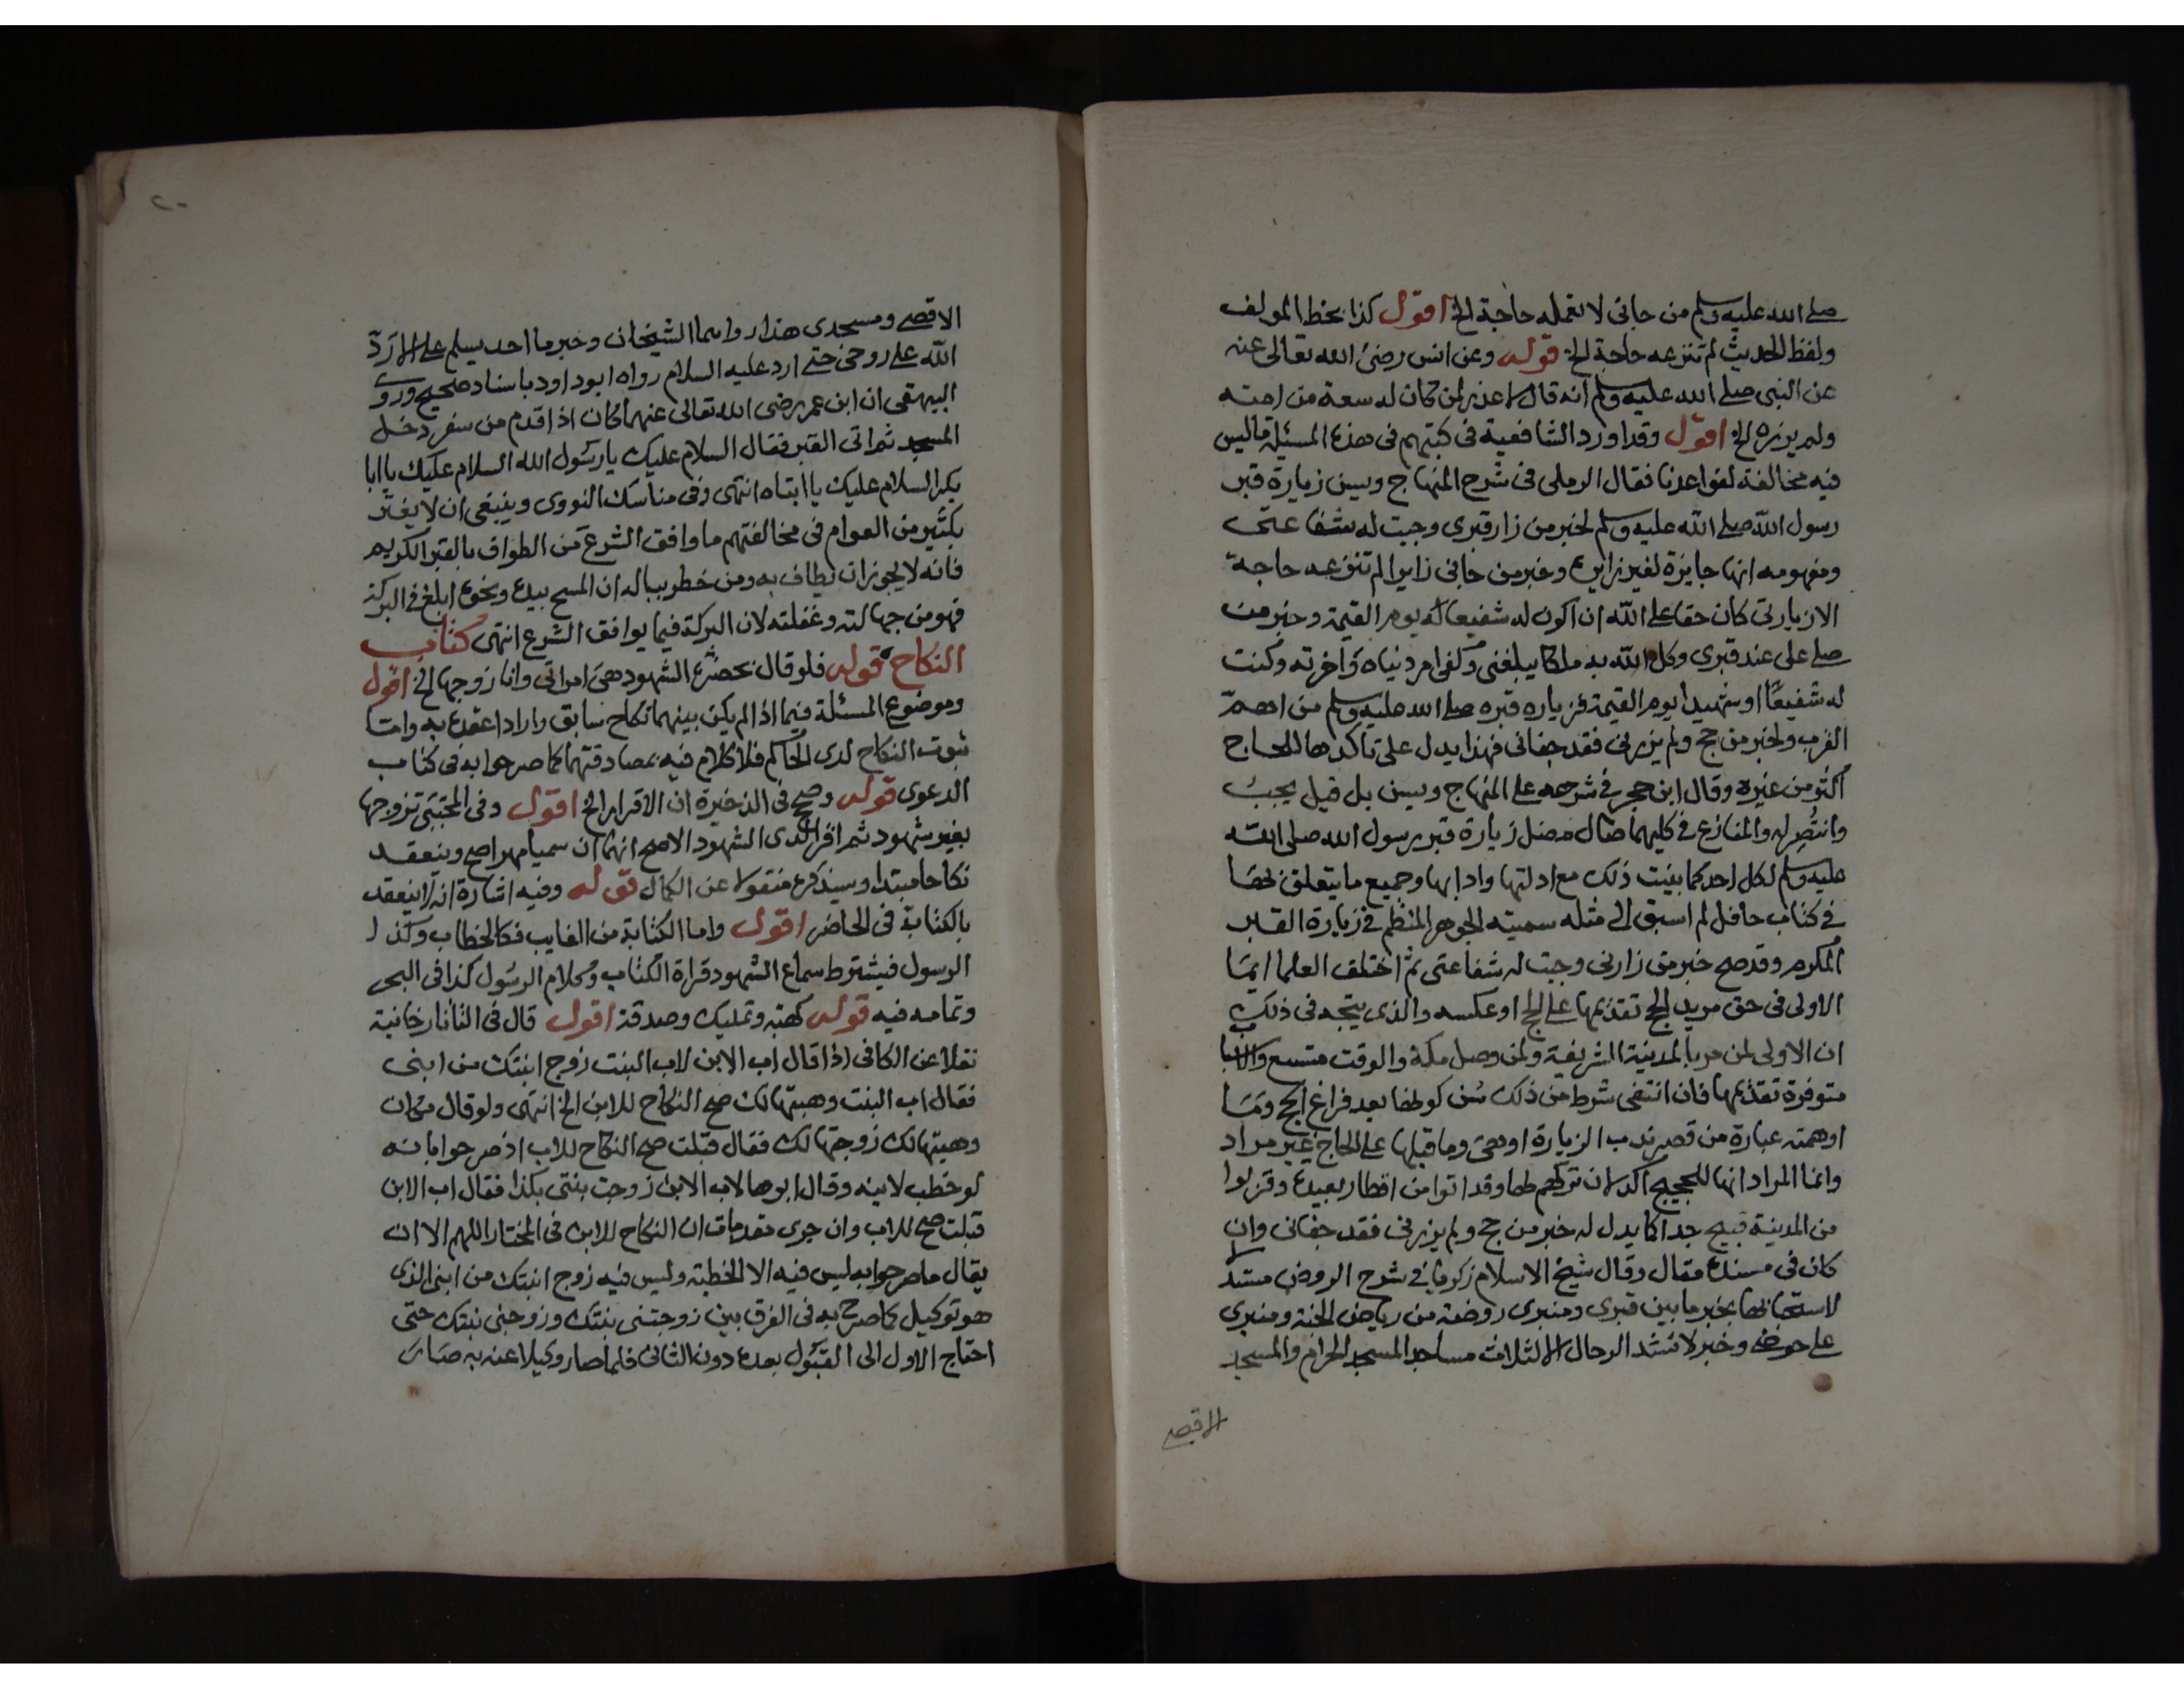 صلى الله عليه وسلم من جاني لا تعمله حاجة الخ اقول كذا بخط المولف
ولفظ الحديث لم تنزعه حاجة الخ قوله وعن انس رضي الله تعالى عنه
عن النبي صلى الله عليه وسلم انه قال لا عذر لمن كان له سعة من امته
ولم يزره الخ اقول وقد اورد الشافعية في كتبهم في هذه المسئلة ما ليس
فيه مخالفة لقواعدنا فقال الرملي في شرح المنهاج ويسن زيارة قبر
رسول الله صلى الله عليه وسلم لخبر من زار قبري وجبت له شفاعتي
ومفهومه انها جايزة لغير زايره وخبر من جاني زايرا لم تنزعه حاجة
الا زيارتي كان حقا على الله ان اكون له شفيعا له يوم القيمة وخبر من
صلى علي عند قبري وكل الله به ملكا يبلغني وكفي امر دنياه واخرته وكنت
له شفيعا او شهيدا يوم القيمة فزياره قبره صلى الله عليه وسلم من اهم
القرب ولخبر من حج ولم يزرني فقد جفاني فهذا يدل على تأكدها للحاج
اكثر من غيره وقال ابن حجر في شرحه على المنهاج ويسن بل قيل يجب
وانتصر له والمنازع في كليهما ضال مضل زيارة قبر رسول الله صلى الله
عليه وسلم لكل احد كما بينت ذلك مع ادلتها وادابها وجميع ما يتعلق بها
في كتاب حافل لم اسبق الى مثله سميته الجوهر المنظم في زيارة القبر
المكرم وقد صح خبر من زارني وجبت له شفاعتي ثم اختلف العلما ايما
الاولى في حق مريد الحج تقديمها على الحج او عكسه والذي يتجه في ذلك
ان الاولى لمن مر بالمدينة الشريفة ولمن وصل مكة والوقت متسع والاسباب
متوفرة تقديمها فان انتفى شرط من ذلك سن كونها بعد فراغ الحج وما
اوهمته عبارة من قصر ندب الزيارة اوهى وما قبلها على الحاج غير مراد
وانما المراد انها للحجيج اكد لان تركهم لها وقد اتوا من اقطار بعيدة وقربوا
من المدينة قبيح جدا كما يدل له خبر من حج ولم يزرني فقد جفاني وان
كان في مسنده مقال وقال شيخ الاسلام زكريا في شرح الروض مستدلا
لاستحبابها بخبر ما بين قبري ومنبري روضة من رياض الجنة ومنبري
على حوضي وخبر لا تشد الرحال الا لثلاث مساجد المسجد الحرام والمسجد
الاقصى
٢٠
الاقصى ومسجدي هذا رواهما الشيخان وخبر ما احد يسلم علي الا رد
الله علي روحي حتى ارد عليه السلام رواه ابو داود باسناد صحيح وروى
البيهقي ان ابن عمر رضي الله تعالى عنهما كان اذا قدم من سفر دخل
المسجد ثم اتى القبر فقال السلام عليك يا رسول الله السلام عليك يا ابا
بكر السلام عليك يا ابتاه انتهى وفي مناسك النووي وينبغي ان لا يغتر
بكثير من العوام في مخالفتهم ما وافق الشرع من الطواف بالقبر الكريم
فانه لا يجوز ان يطاف به ومن خطر بباله ان المسح بيده ونحوه ابلغ في البركة
فهو من جهالته وغفلته لان البركة فيما يوافق الشرع انتهى كتاب
النكاح قوله فلو قال بحضرة الشهود هي امراتي وانا زوجها الخ اقول
وموضوع المسئلة فيما اذا لم يكن بينهما نكاح سابق وارادا عقده به واما
ثبوت النكاح لدى الحاكم فلا كلام فيه بمصادقتهما كما صرحوا به في كتاب
الدعوى قوله وصح في الذخيرة ان الاقرار الخ اقول وفي المجتبى تزوجها
بغير شهود ثم اقرا لدى الشهود الاصح انهما ان سميا مهرا صح وينعقد
نكاحا مبتدا وسيذكره منقولا عن الكمال قوله وفيه اشارة انه لا ينعقد
بالكتابة في الحاضر اقول واما الكتابة من الغايب فكالخطاب وكذا
الرسول فيشترط سماع الشهود قراة الكتاب وكلام الرسول كذا في البحر
وتمامه فيه قوله كهبة وتمليك وصدقة اقول قال في التاتارخانية
نقلا عن الكافي اذا قال اب الابن لاب البنت زوج ابنتك من ابني
فقال اب البنت وهبتها لك صح النكاح للابن الخ انتهى ولو قال مكان
وهبتها لك زوجتها لك فقال قبلت صح النكاح للاب اذ صرحوا بانه
لو خطب لابنه وقال ابوها لاب الابن زوجت بنتي بكذا فقال اب الابن
قبلت صح للاب وان جرى مقدمات ان النكاح للابن في المختار اللهم الا ان
يقال ما صرحوا به ليس فيه الا الخطبة وليس فيه زوج ابنتك من ابني الذي
هو توكيل كما صرح به في الفرق بين زوجتني بنتك وزوجني بنتك حتى
احتاج الاول الى القبول بعده دون الثاني فلما صار وكيلا عنه به صار